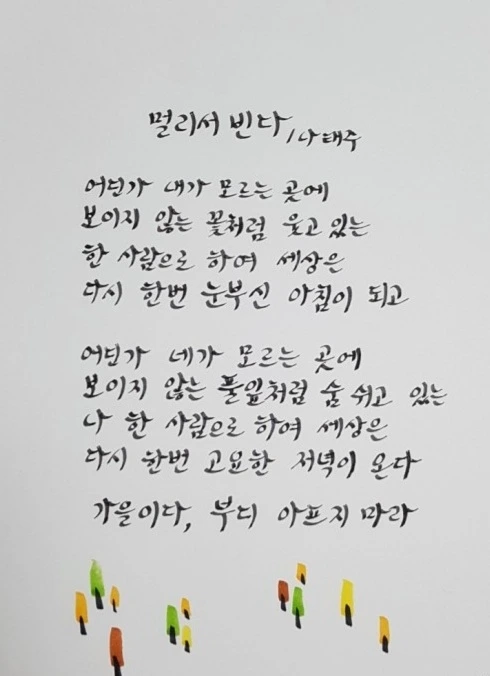 멀리서 빈다 / 나태주
어딘가 내가 모르는 곳에
보이지 않는 꽃처럼 웃고 있는
한 사람으로 하여 세상은
다시 한번 눈부신 아침이 되고
어딘가 네가 모르는 곳에
보이지 않는 풀잎처럼 숨 쉬고 있는
나 한 사람으로 하여 세상은
다시 한번 고요한 저녁이 온다
가을이다, 부디 아프지 마라